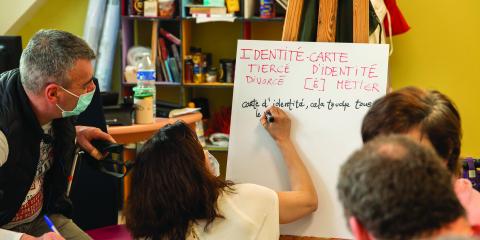 IDENTITÉ-CARTE
TIERCÉ D'IDENTITÉ
DIVORCÉ [É] MÉTIER
carte d'identité, cela tous
le